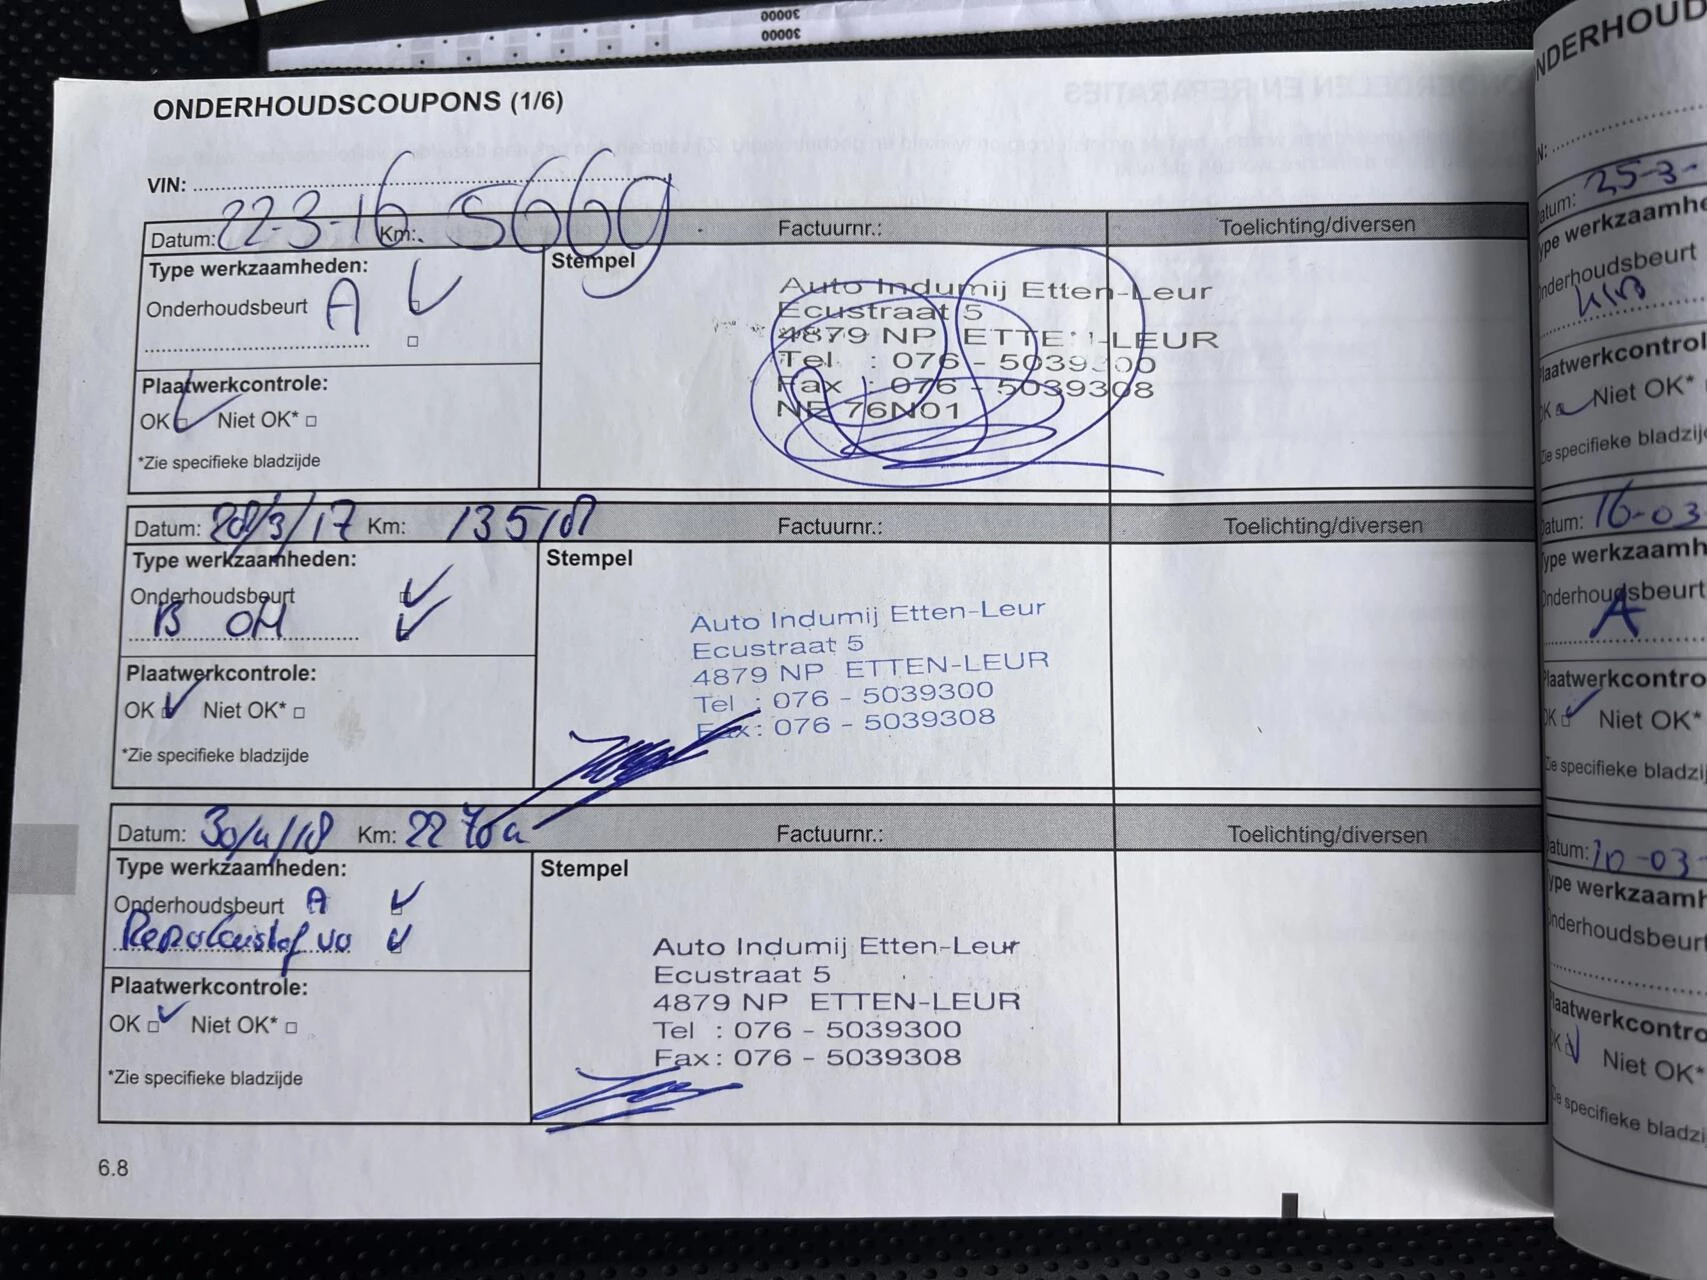 30000
30000
ONDERHOUDSCOUPONS (1/6)
VIN:
Datum: 22-3-16 Km: 5669 Factuurnr.: Toelichting/diversen
Type werkzaamheden:
Onderhoudsbeurt A
Stempel
Auto Indumij Etten-Leur
Ecustraat 5
4879 NP ETTEN-LEUR
Tel : 076 - 5039300
Fax : 076 - 5039308
76N01
Plaatwerkcontrole:
OK Niet OK*
*Zie specifieke bladzijde
Datum: 28/3/17 Km: 13518 Factuurnr.: Toelichting/diversen
Type werkzaamheden:
Onderhoudsbeurt
B OH
Stempel
Auto Indumij Etten-Leur
Ecustraat 5
4879 NP ETTEN-LEUR
Tel : 076 - 5039300
Fax: 076 - 5039308
Plaatwerkcontrole:
OK Niet OK*
*Zie specifieke bladzijde
Datum: 30/4/18 Km: Factuurnr.: Toelichting/diversen
Type werkzaamheden:
Onderhoudsbeurt A
Stempel
Auto Indumij Etten-Leur
Ecustraat 5
4879 NP ETTEN-LEUR
Tel : 076 - 5039300
Fax: 076 - 5039308
Plaatwerkcontrole:
OK Niet OK*
*Zie specifieke bladzijde
6.8
NDERHOUD
N:
atum: 25-3-
ype werkzaamhe
nderhoudsbeurt
laatwerkcontrol
K Niet OK*
ie specifieke bladzij
Datum: 16-03
ype werkzaamh
Onderhoudsbeurt
A
laatwerkcontro
OK Niet OK*
ie specifieke bladzij
atum: 10-03-
ype werkzaamh
nderhoudsbeurt
laatwerkcontro
K Niet OK*
e specifieke bladzi